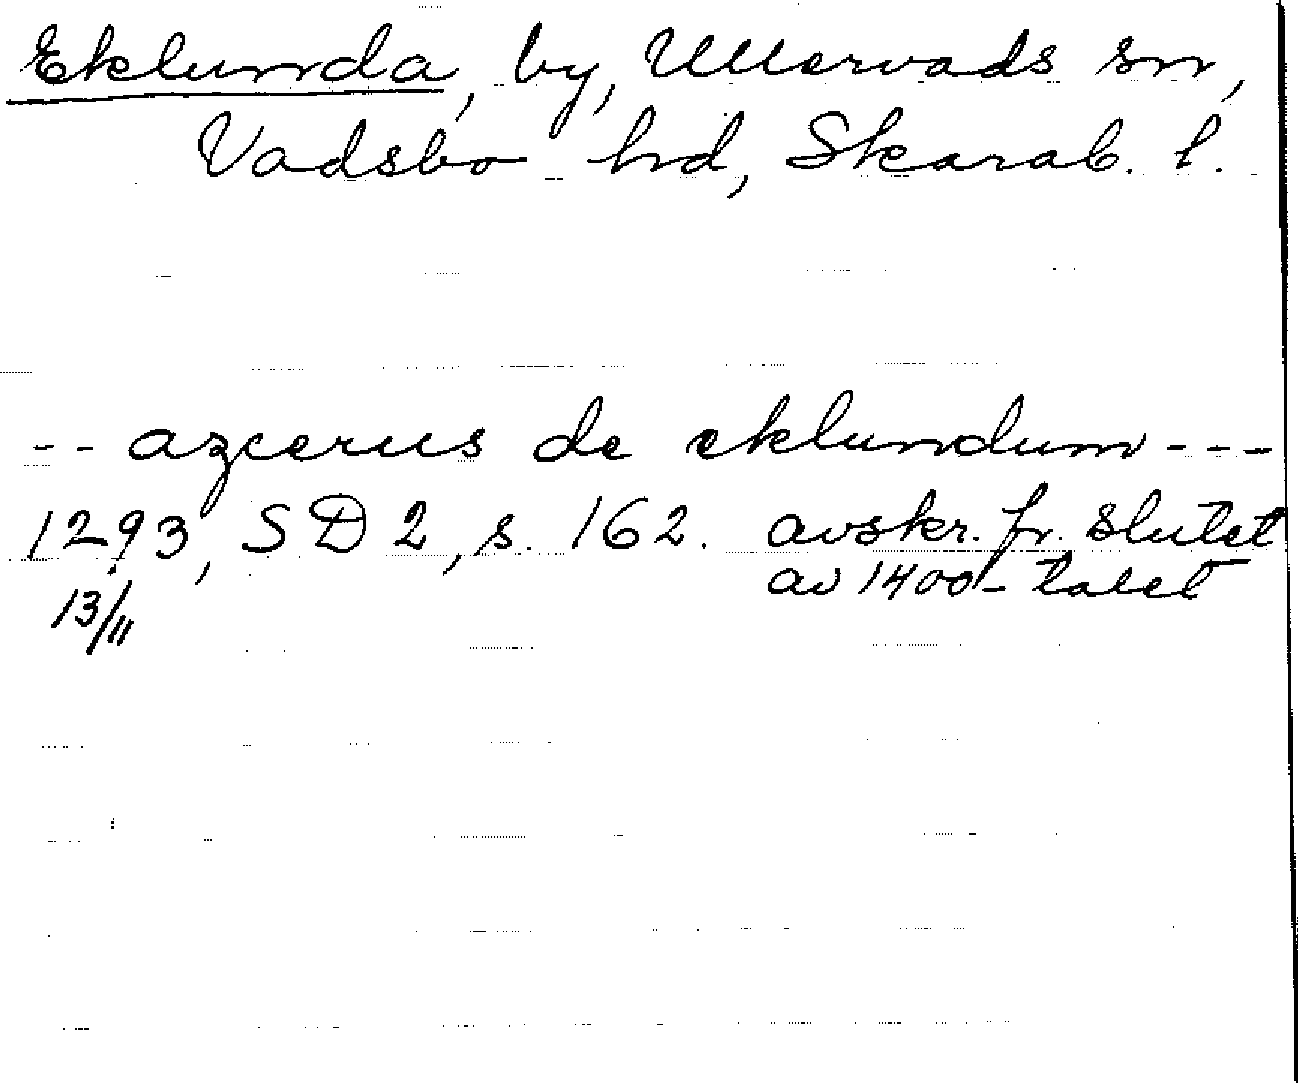 Eklunda, by, Ullervads sn,
Vadsbo hd, Skarab. l.
-- azcerus de eklundum ---
1293, SD 2, s. 162. avskr. fr. slutet
av 1400-talet
13/11